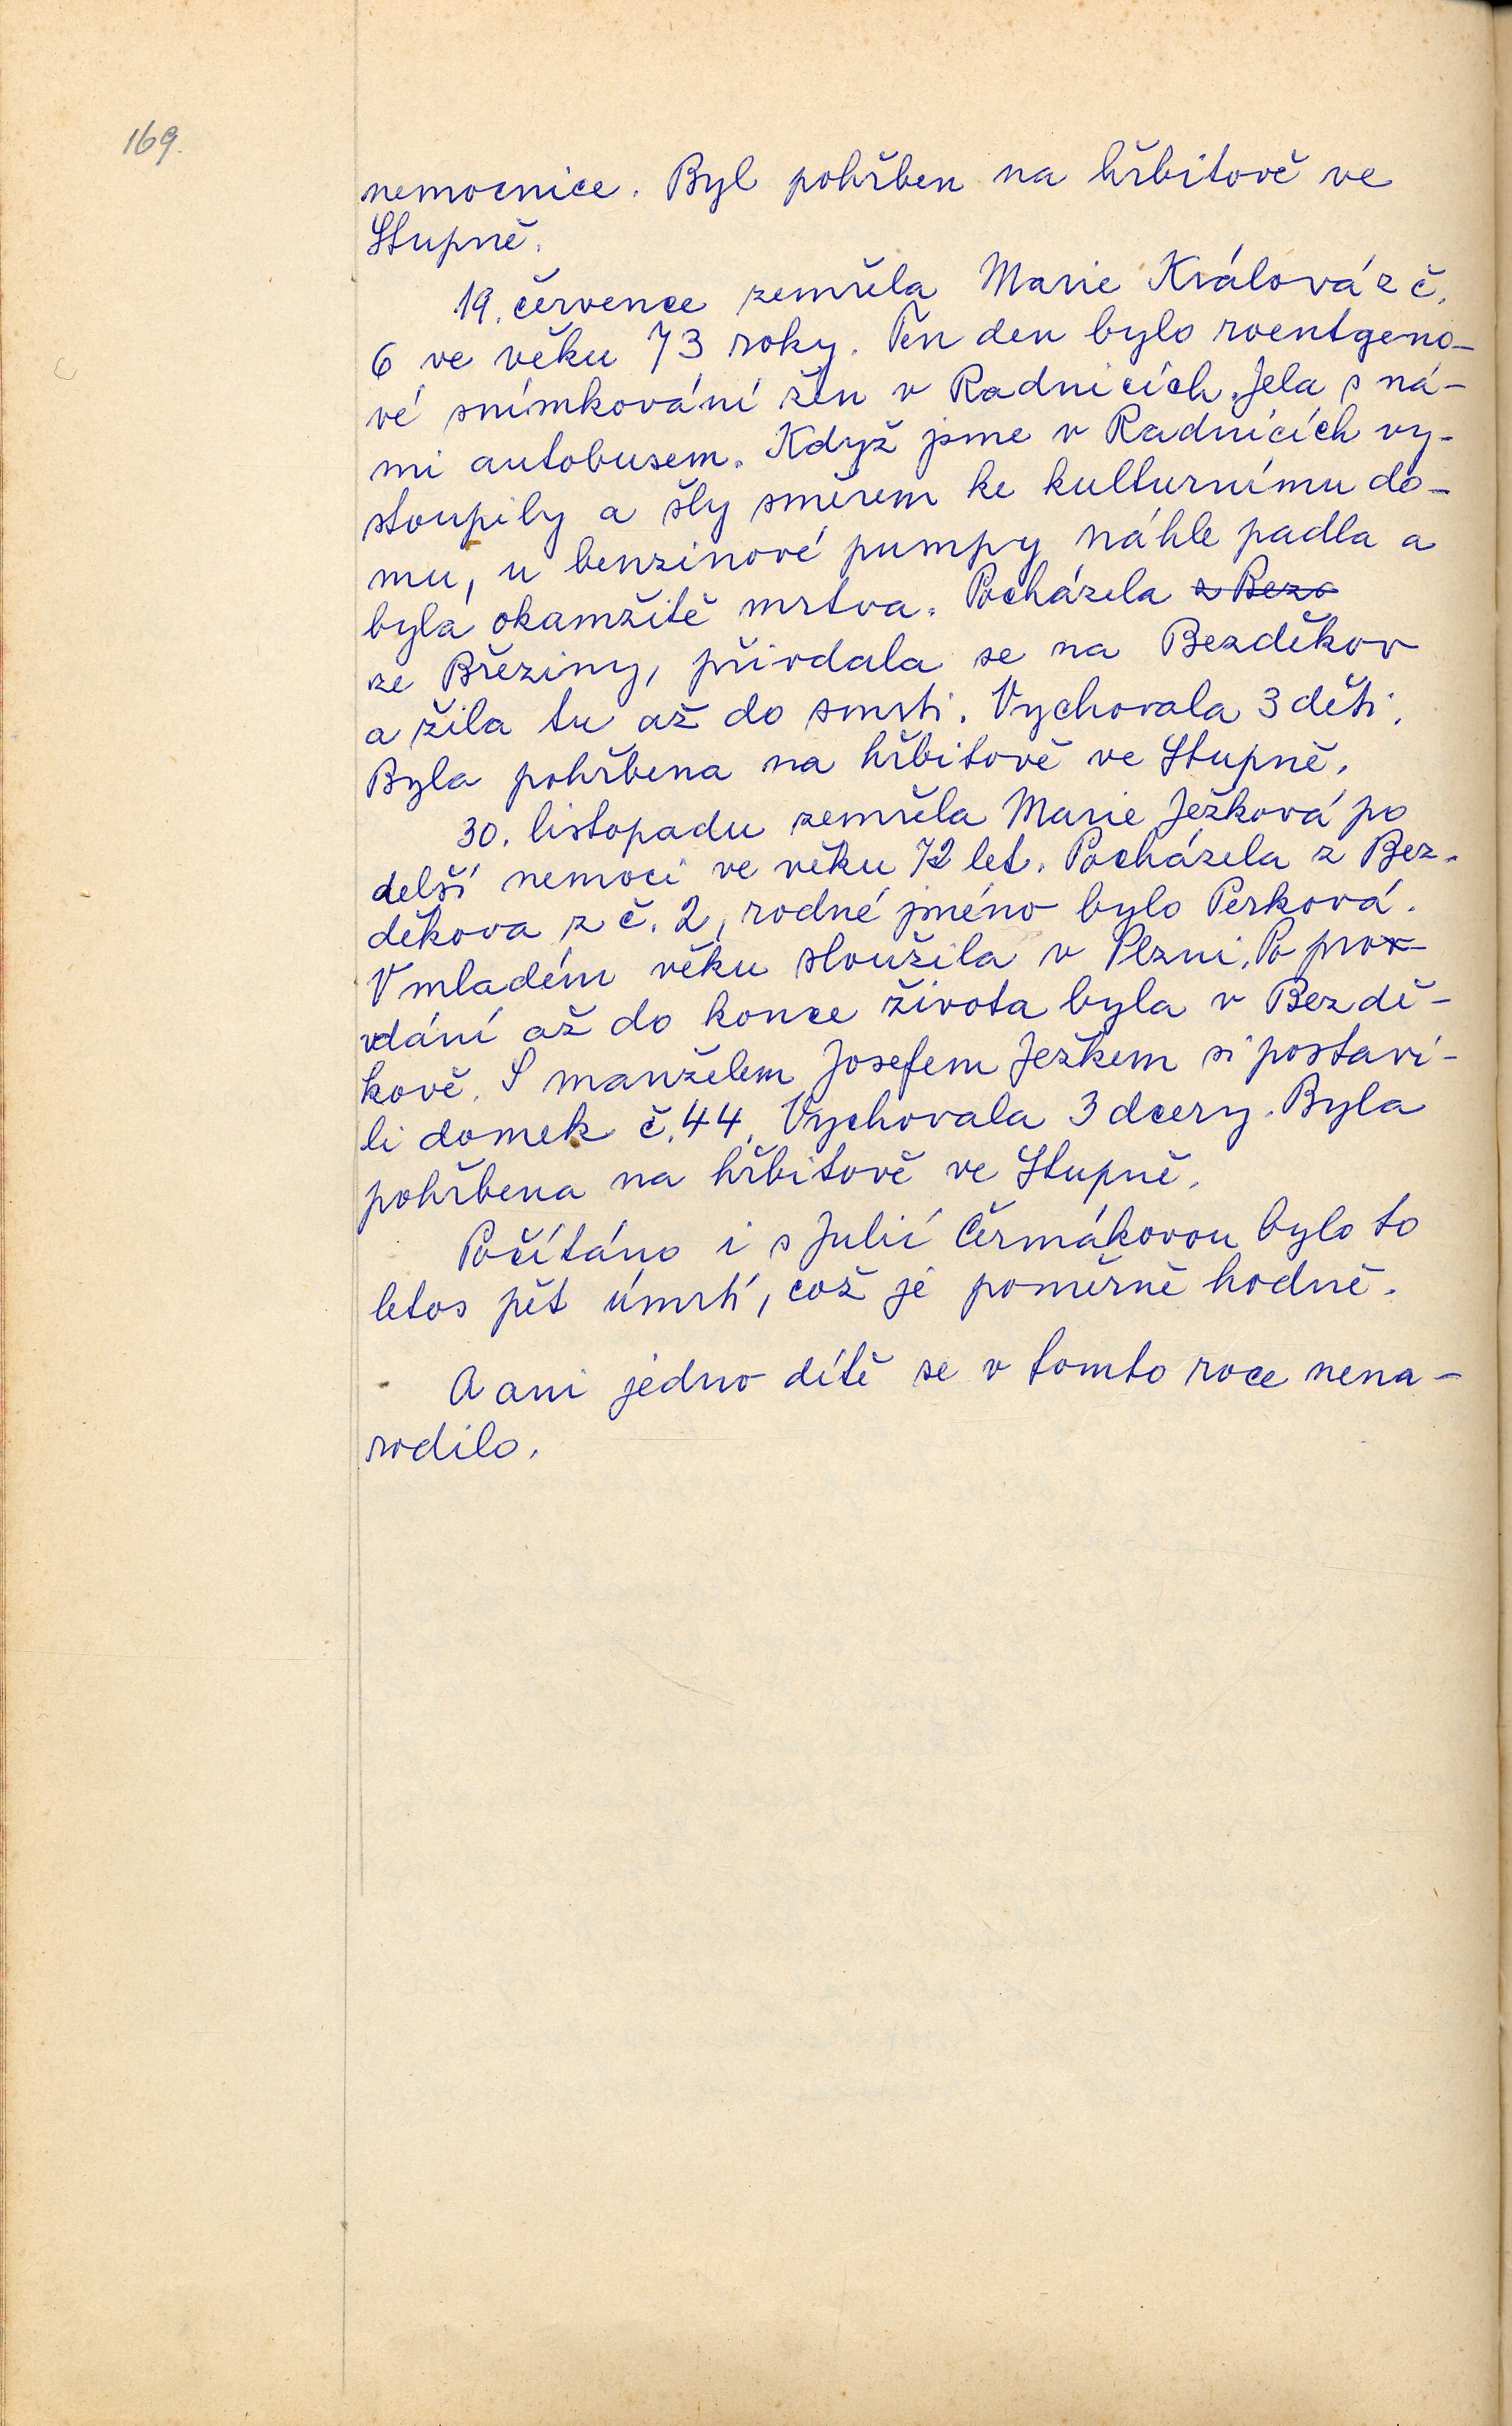 169.
nemocnice. Byl pohřben na hřbitově ve
Stupně.
19. července zemřela Marie Králová z č.
6 ve věku 73 roky. Ten den bylo roentgeno-
vé snímkování žen v Radnicích. Jela s ná-
mi autobusem. Když jsme v Radnicích vy-
stoupily a šly směrem ke kulturnímu do-
mu, u benzinové pumpy náhle padla a
byla okamžitě mrtva. Pocházela z Bezo
ze Březiny, přivdala se na Bezděkov
a žila tu až do smrti. Vychovala 3 děti.
Byla pohřbena na hřbitově ve Stupně.
30. listopadu zemřela Marie Ježková po
delší nemoci ve věku 72 let. Pocházela z Bez-
děkova z č. 2, rodné jméno bylo Perková.
V mladém věku sloužila v Plzni. Po pro-
vdání až do konce života byla v Bezdě-
kově. S manželem Josefem Ježkem si postavi-
li domek č. 44. Vychovala 3 dcery. Byla
pohřbena na hřbitově ve Stupně.
Počítáno i s Julií Čermákovou bylo to
letos pět úmrtí, což je poměrně hodně.
A ani jedno dítě se v tomto roce nena-
rodilo.